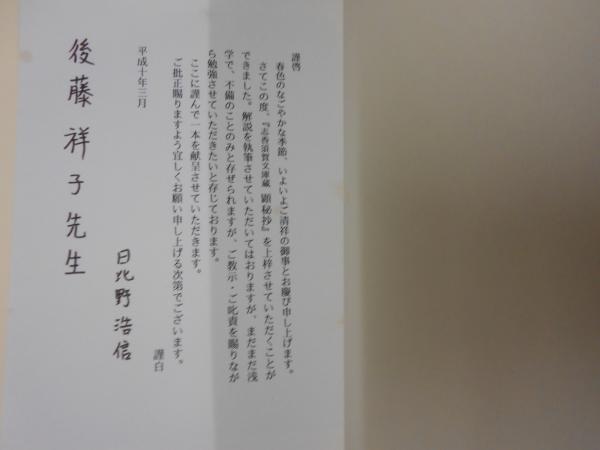 謹啓
春色のなごやかな季節、いよいよご清祥の御事とお慶び申し上げます。
さてこの度、『志香須賀文庫蔵 顕秘抄』を上梓させていただくことが
できました。解説を執筆させていただいてはおりますが、まだまだ浅
学で、不備のことのみと存ぜられますが、ご教示・ご叱責を賜りなが
ら勉強させていただきたいと存じております。
ここに謹んで一本を献呈させていただきます。
ご批正賜りますよう宜しくお願い申し上げる次第でございます。
謹白
平成十年三月
日比野浩信
後藤祥子先生